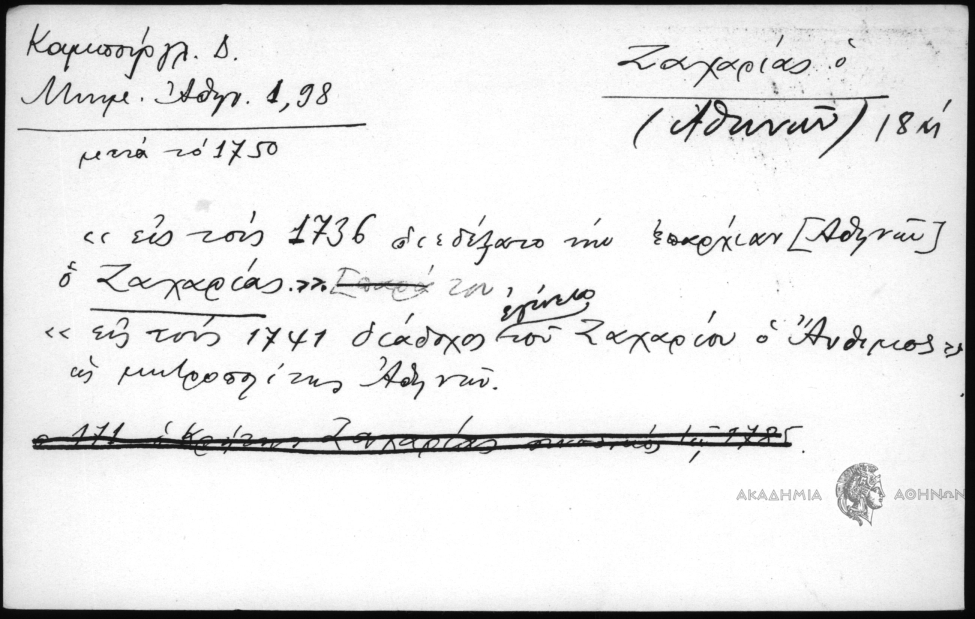 Καμπούρογλ. Δ.
Μνημ. Ἀθην. 1, 98
μετά τό 1750
Ζαχαρίας ὁ
(Ἀθηνῶν) 18
« εἰς τούς 1736 διεδέξατο τήν ἐπαρχίαν [Ἀθηνῶν]
ὁ Ζαχαρίας.»
ἐγένετο
« εἰς τούς 1741 διάδοχος τοῦ Ζαχαρίου ὁ Ἄνθιμος»
ὡς μητροπολίτης Ἀθηνῶν.
Ζαχαρίας 1785.
ΑΚΑΔΗΜΙΑ ΑΘΗΝΩΝ